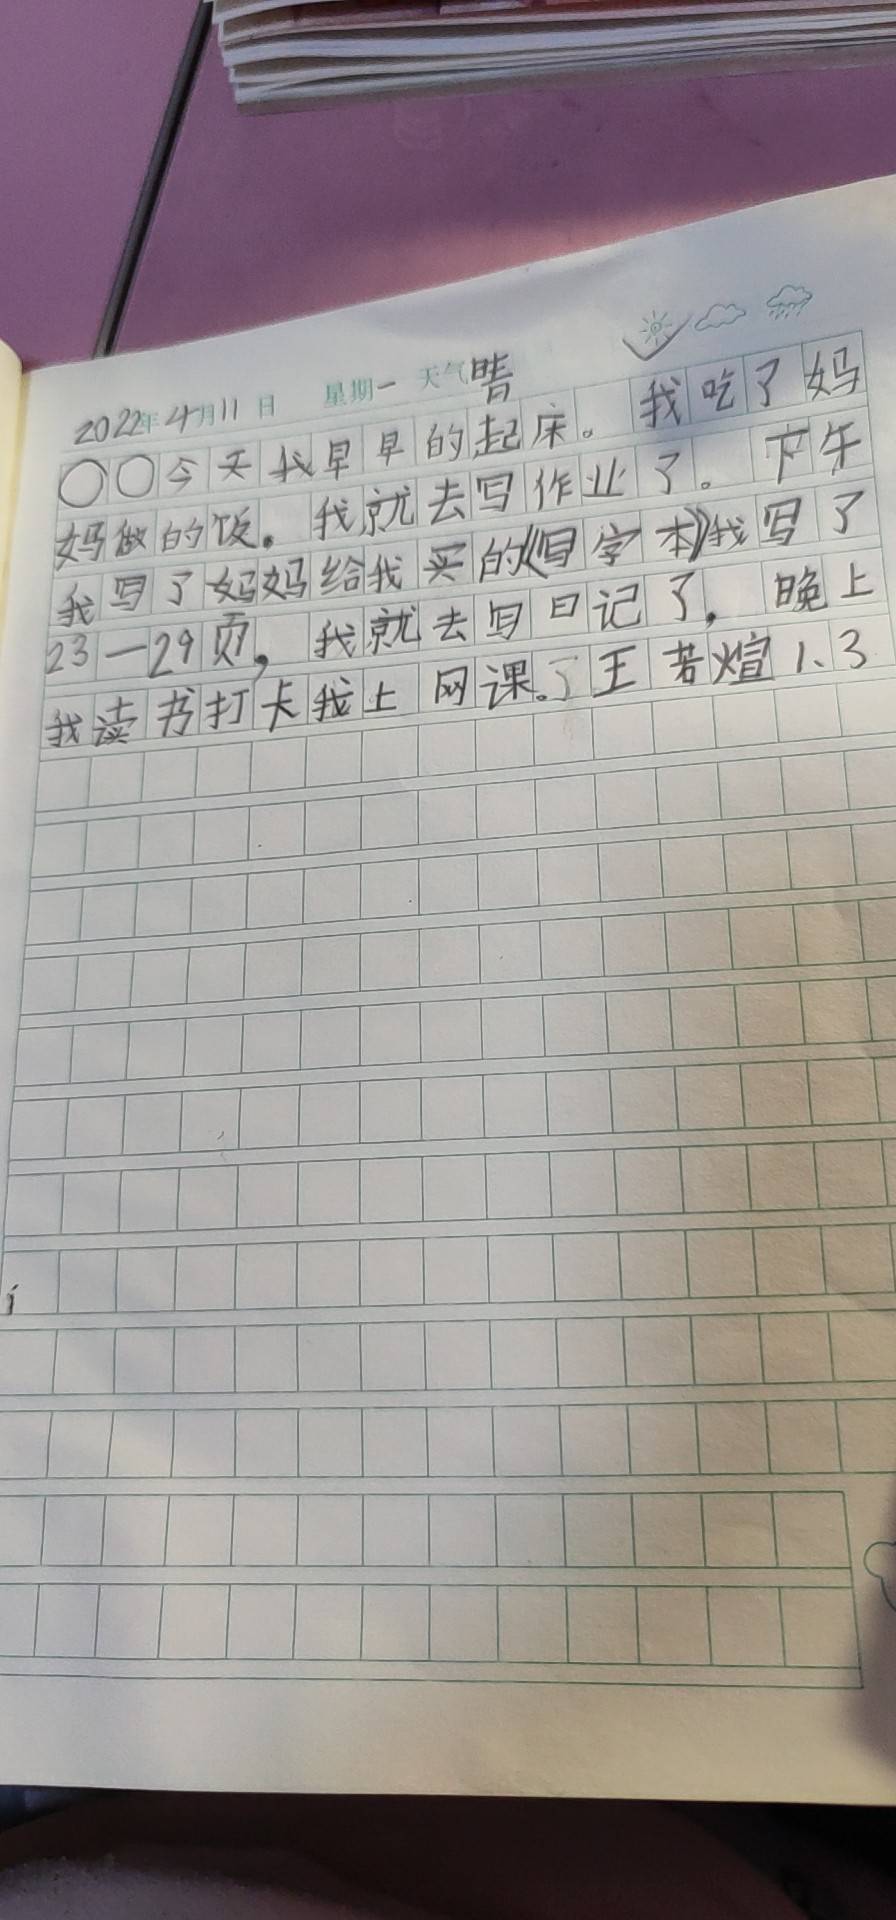 2022年4月11日 星期一 天气晴
〇〇今天我早早的起床。我吃了妈
妈做的饭。我就去写作业了。下午
我写了妈妈给我买的《写字本》我写了
23—29页，我就去写日记了，晚上
我读书打卡我上网课。了王若煊1、3